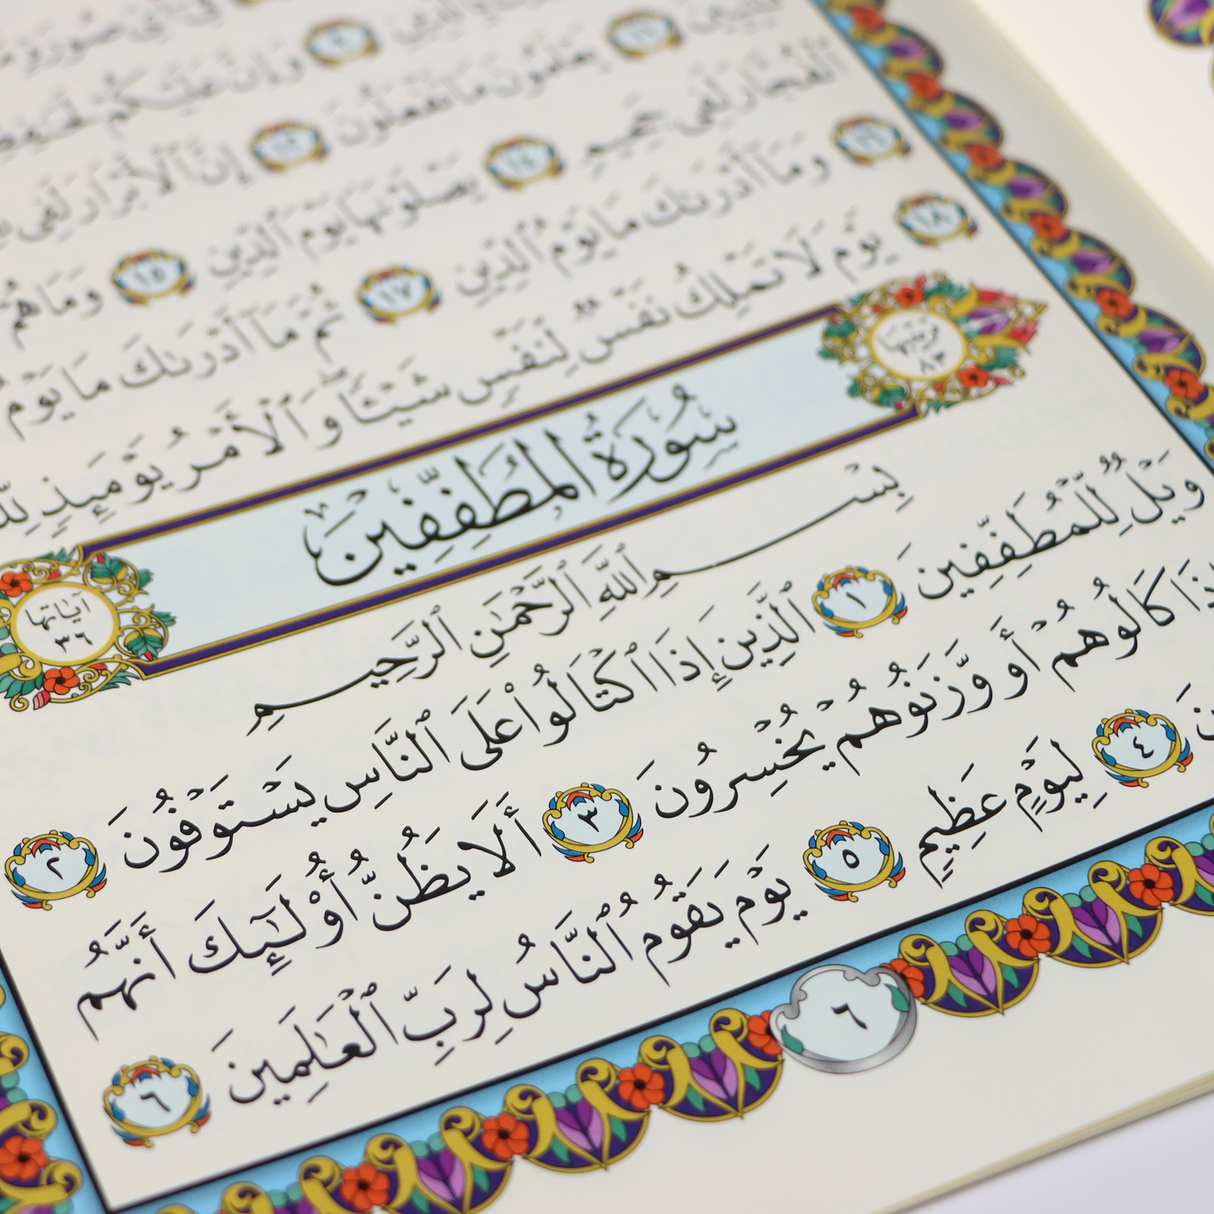 وَإِنَّ عَلَيْكُمْ
يَعْلَمُونَ مَا تَفْعَلُونَ ١٢ إِنَّ ٱلْأَبْرَارَ لَفِى
ٱلْفُجَّارَ لَفِى جَحِيمٍ ١٤ يَصْلَوْنَهَا يَوْمَ ٱلدِّينِ ١٥ وَمَا هُمْ
١٦ وَمَآ أَدْرَىٰكَ مَا يَوْمُ ٱلدِّينِ ١٧ ثُمَّ مَآ أَدْرَىٰكَ مَا يَوْمُ
١٨ يَوْمَ لَا تَمْلِكُ نَفْسٌ لِّنَفْسٍ شَيْـًٔا ۖ وَٱلْأَمْرُ يَوْمَئِذٍ
ترتيبها ٨٣
سُورَةُ المُطَفِّفِينَ
آياتها ٣٦
بِسْمِ ٱللَّهِ ٱلرَّحْمَٰنِ ٱلرَّحِيمِ
وَيْلٌ لِّلْمُطَفِّفِينَ ١ ٱلَّذِينَ إِذَا ٱكْتَالُوا۟ عَلَى ٱلنَّاسِ يَسْتَوْفُونَ ٢
كَالُوهُمْ أَو وَّزَنُوهُمْ يُخْسِرُونَ ٣ أَلَا يَظُنُّ أُو۟لَٰٓئِكَ أَنَّهُم
٤ لِيَوْمٍ عَظِيمٍ ٥ يَوْمَ يَقُومُ ٱلنَّاسُ لِرَبِّ ٱلْعَٰلَمِينَ ٦
٦